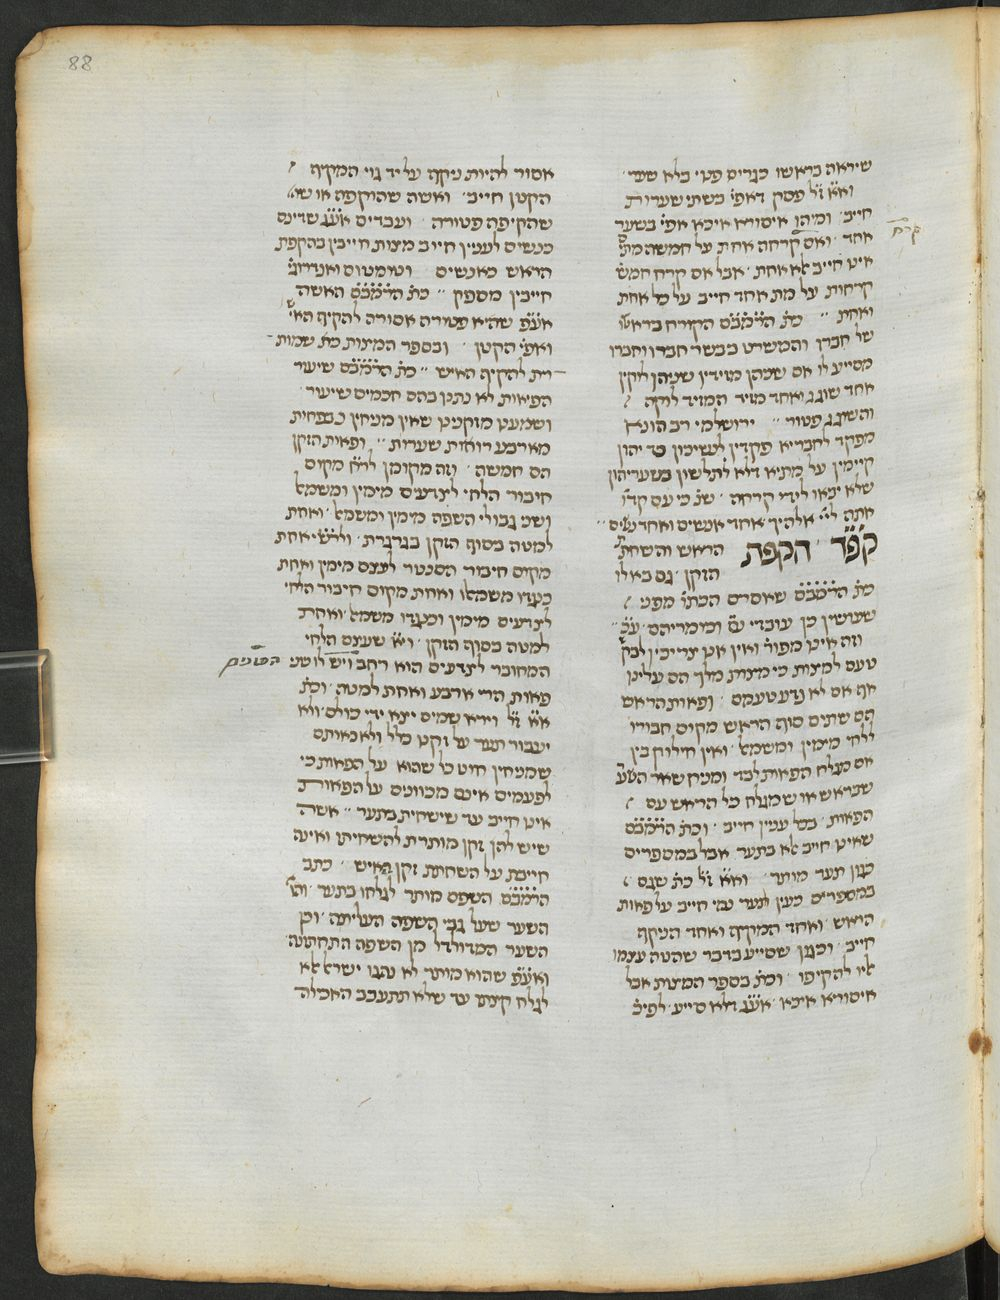 88
שיראה בראשו כגריס פנוי בלא שער׳
וא״א ז״ל פסק דאפי׳ בשתי שערות
חייב׳ ומיהו איסורא איכא אפי׳ בשער
אחד׳ ואם קרחה אחת על חמשה מתי׳
אינו חייב אלא אחת׳ אבל אם קרח חמש
קרחות על מת אחד חייב על כל אחת
ואחת ״ כת׳ הרמב״ם הקורח בראשו
של חברו והמשרט בבשר חברו וחברו
מסייע לו אם שניהן מזידין שניהן לוקין
אחד שוגג ואחד מזיד המזיד לוקה
והשוגג פטור ״ ירושלמי רב הונא
מפקד לחבריא פקדין לנשיכון כד יהון
קיימין על מתיא דלא יתלשון בשעריהון
שלא יבאו לידי קרחה׳ שנ׳ כי עם קדו׳
אתה לי״י אלהיך אחד אנשים ואחד נשים ״
ק״פ״ר׳ הקפת הראש והשחת
הזקן׳ גם באלו
כת׳ הרמב״ם שאוסרם הכתו׳ מפני
שעושין כן עובדי ע״ז וכומריהם׳ עכ״
וזה אינו מפור׳ ואין אנו צריכין לבק׳
טעם למצות כי מצות מלך הם עלינו
אף אם לא נדע טעמם׳ ופאות הראש
הם שתים סוף הראש מקום חבורו
ללחי מימין ומשמאל׳ ואין חילוק בין
אם מגלח הפאות לבד ומניח שאר השע׳
שבראש או שמגלח כל הראש עם
הפאות׳ בכל ענין חייב׳ וכת׳ הרמב״ם
שאינו חייב אלא בתער אבל במספרים
כגון תער מותר׳ וא״א ז״ל כת׳ שגם
במספרים כעין תער נמי חייב על פאות
הראש׳ ואחד המקיף ואחד הניקף
חייב׳ וכגון שסייע בדבר שהטה עצמו
אליו להקיפו׳ וכת׳ בספר המצות אבל
איסורא איכא׳ אע״ג דלא סייע׳ לפיכ׳
קרח
אסור להיות ניקף על יד גוי המקיף
הקטן חייב׳ ואשה שהוקפה או שא׳
שהקיפה פטורה׳ ועבדים אע״ג שדינם
כנשים לענין חייב מצות חייבין בהקפת
הראש כאנשים׳ וטומטום ואנדרוגי׳
חייבין מספק ״ כת׳ הרמב״ם האשה
אע״פ שהיא פטורה אסורה להקיף האי׳
ואפי׳ הקטן׳ ובספר המצות כת׳ שמות־
־רת להקיף האיש ״ כת׳ הרמב״ם שיעור
הפיאות לא נתנו בהם חכמים שיעור׳
ושמענו מזקנינו שאין מניחין בפחות
מארבע רואות שערות ״ ופאות הזקן
הם חמשה׳ וזה מקומן לר״ח מקום
חיבור הלחי לצדעים מימין ומשמאל
ושני גבולי השפה מימין ומשמאל׳ ואחת
למטה בסוף הזקן בגרגרת׳ ולרש״י אחת
מקום חיבור הסנטר לעצם מימין ואחת
כנגדו משמאלו ואחת מקום חיבור הלחי
לצדעים מימין וכנגדו משמאל׳ ואחת
למטה בסוף הזקן׳ וי״א שעצם הלחי
המחובר לצדעים הוא רחב ויש לו שני
פאות הרי ארבע ואחת למטה׳ וכת׳
א״א ז״ל וירא שמים יצא ידי כולם׳ ולא
יעבור תער על זקנו כלל ולא כאותם
שמניחין חוט כל שהוא על הפאות כי
לפעמים אינם מכוונים על הפאות
אינו חייב עד שישחית בתער ״ אשה
שיש להן זקן מותרת להשחיתו ואינה
חייבת על השחתת זקן האיש׳ כתב
הרמב״ם השפם מותר לגלחו בתער והו׳
השער שעל גבי השפה העליונה׳ וכן
השער המדולדל מן השפה התחתונה׳
ואע״פ שהוא מותר לא נהגו ישראל אלא
לגלח קצתו עד שלא תתעכב האכילה